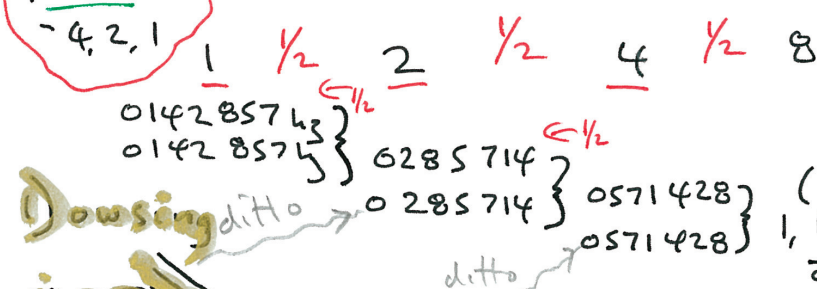 - 4, 2, 1
1 1/2 2 1/2 4 1/2 8
← 1/2
0142857 hz }
0142857 hz } 0285714 } ← 1/2
Dowsing ditto 0285714 } 0571428 } (
0571428 } 1,
ditto